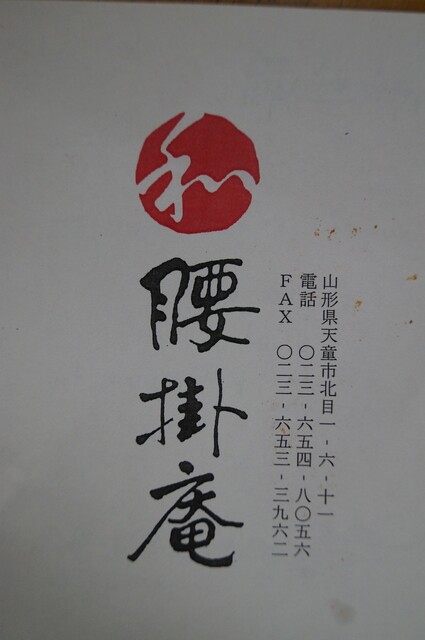 和
腰掛庵
山形県天童市北目一-六-十一
電話 〇二三-六五四-八〇五六
FAX 〇二三-六五三-三九六二